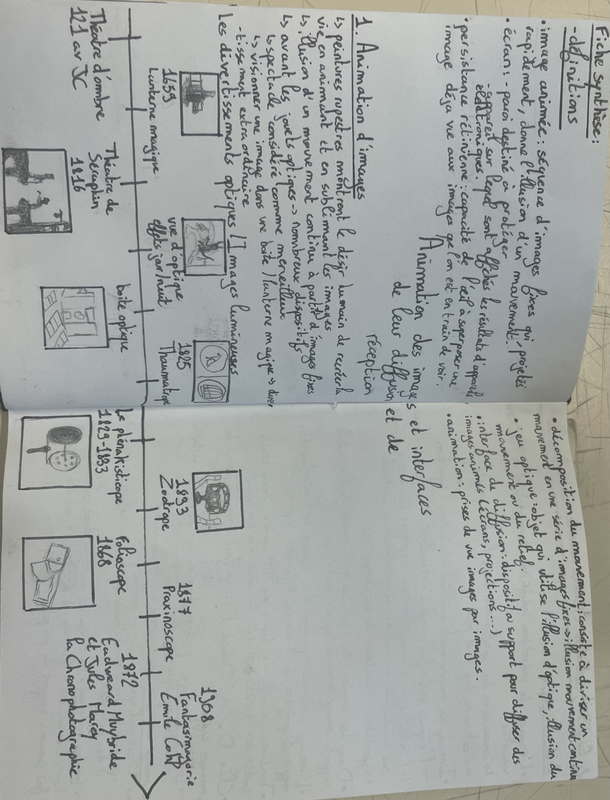 Fiche synthèse:
- définitions
• image animée : séquence d'images fixes qui, projetés
rapidement, donne l'illusion d'un mouvement.
• écran : - paroi destiné à protéger
- appareil sur lequel sont affichés les résultats d'appareils
électroniques.
• persistance rétinienne : capacité de l'œil à superposer une
image déjà vue aux images que l'on est en train de voir.
• décomposition du mouvement : consiste à diviser un
mouvement en une série d'images fixes → illusion mouvement continu
• jeu optique : objet qui utilise l'illusion d'optique, illusion du
mouvement ou du relief.
• interface de diffusion : dispositif / support pour diffuser des
images animées (écrans, projections...)
• animation : prises de vue images par images.
Animation des images et interfaces
de leur diffusion et de
réception
1. Animation d'images
↳ peintures rupestres montrent le désir humain de recréer la
vie en animant et en sublimant les images
↳ illusion d'un mouvement continu à partir d'images fixes
↳ avant les jouets optiques → nombreux dispositifs
↳ spectacle considéré comme merveilleux
↳ visionner une image dans une boîte / lanterne magique →
-tissement extraordinaire
Les divertissements optiques / Images lumineuses
1659
Lanterne magique
vue d'optique
effets jour/nuit
1825
Thaumatrope
1833
Zootrope
1877
Praxinoscope
1908
Fantasmagorie
Emile Cohl
Théâtre d'ombre
121 av JC
Théâtre de
Séraphin
1816
boîte optique
Le phénakistiscope
1829-1833
Folioscope
1868
1872
Eadweard Muybride
et Jules Marey
la Chronophotographie